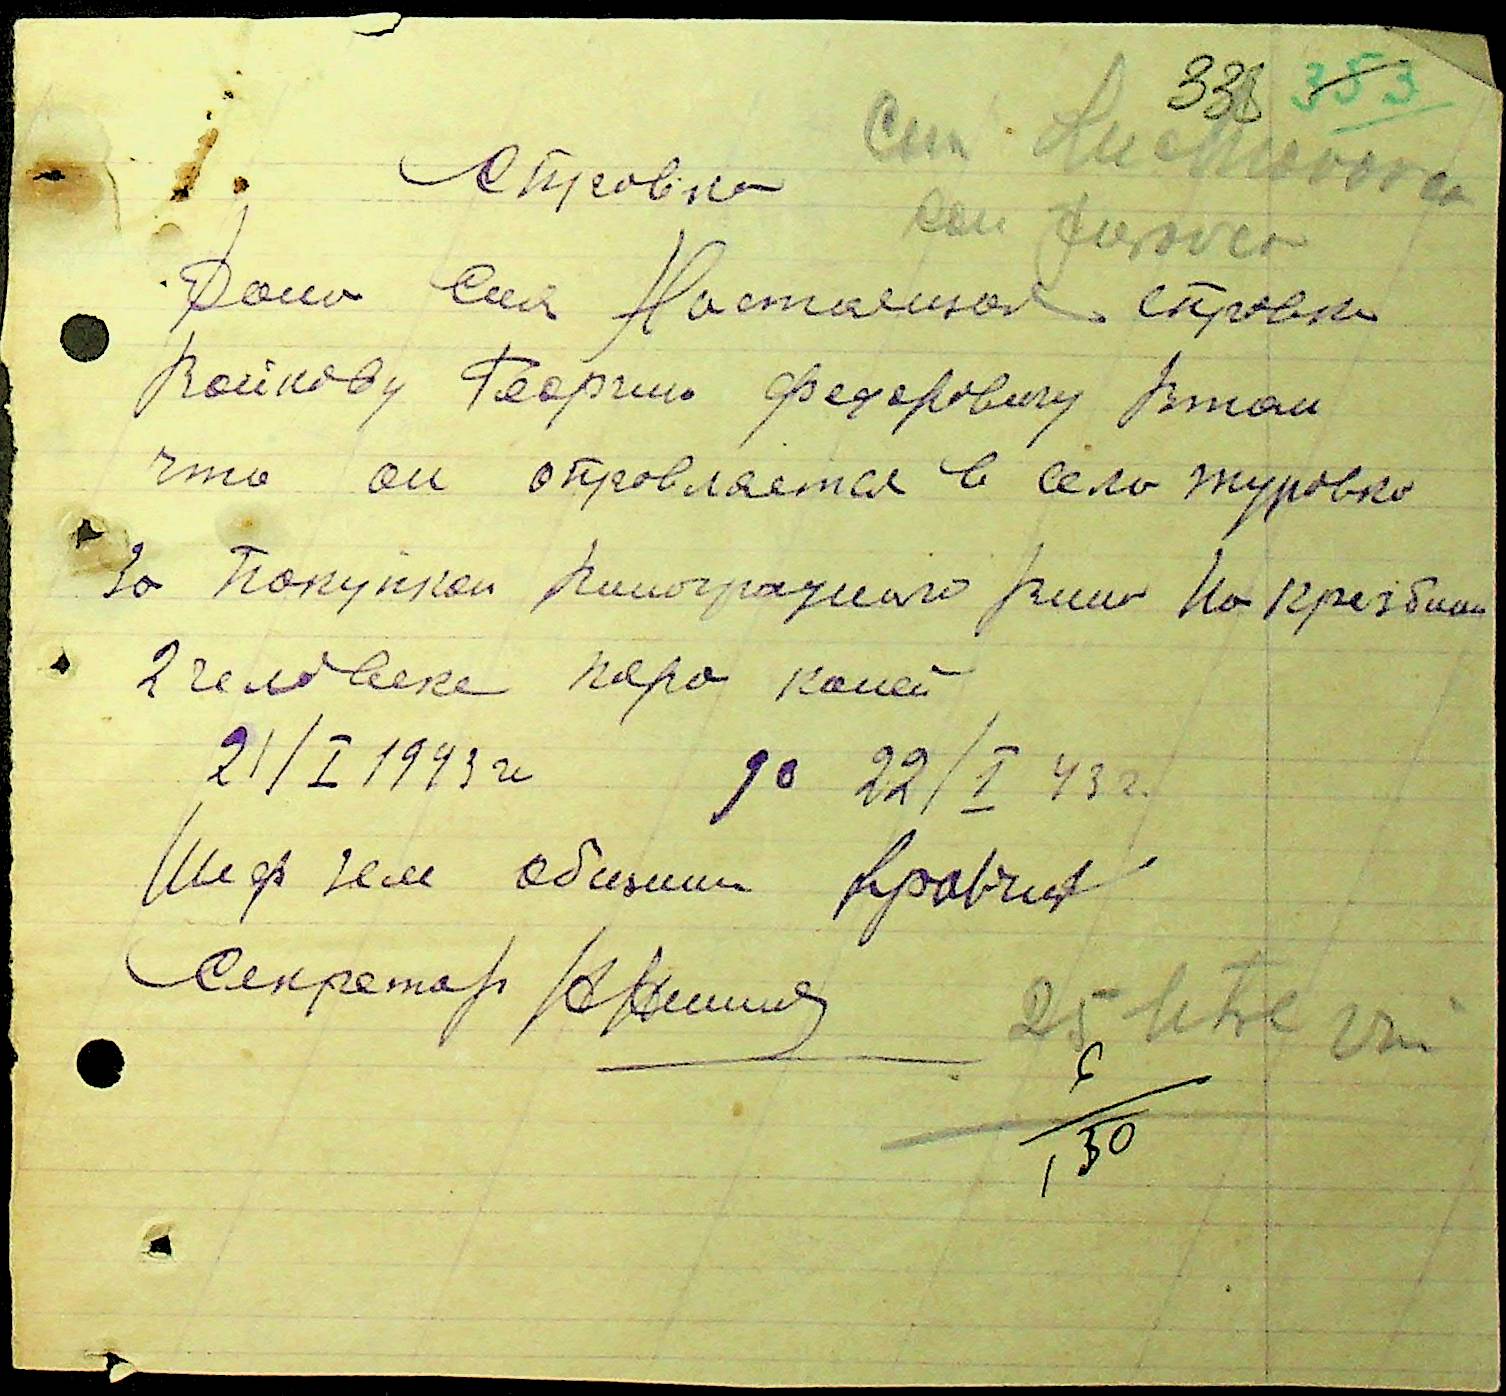 338 353
Справка
Дана Сия Настаящая справка
Войкову Георгию Федоровичу Втом
что он отровляется в село журовка
За Покупкой Виноградного Вина На крезбины
2 человека пара коней
21/I 1943 г до 22/I 43 г.
Шеф зем обизии Кровчия
Секретар
25 litre vin
6
130